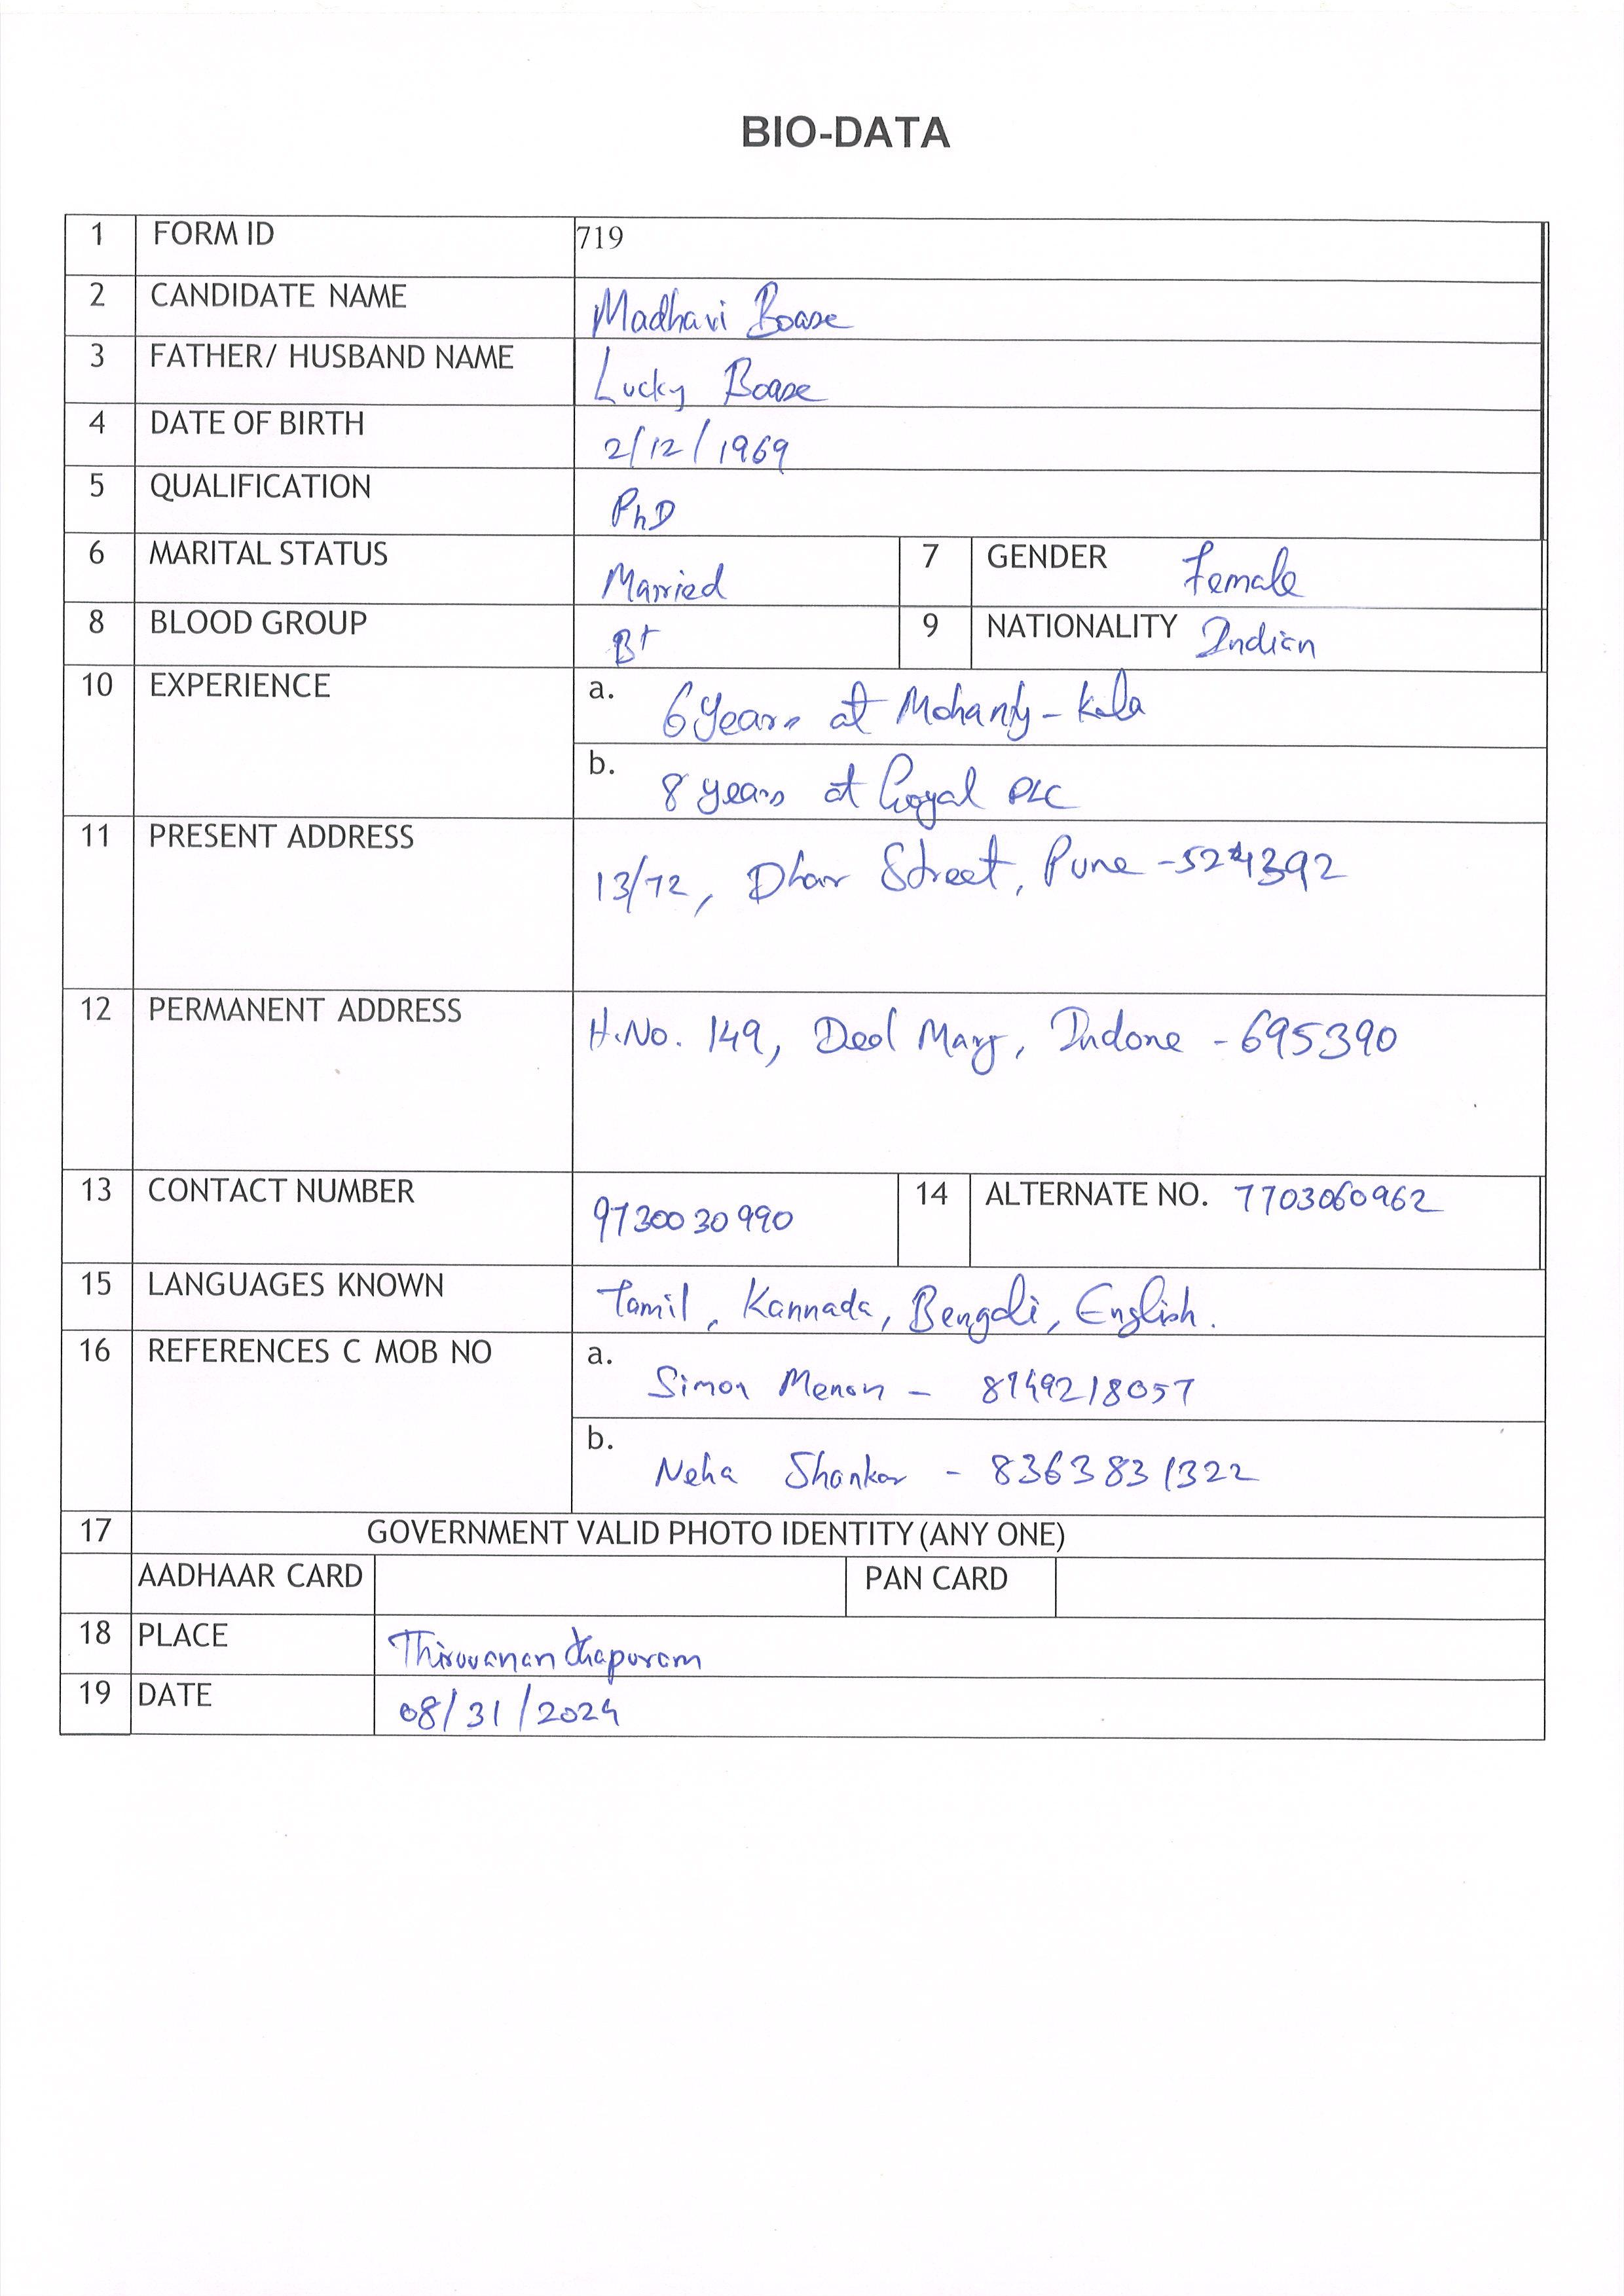 BIO-DATA
1 FORM ID 719
2 CANDIDATE NAME Madhavi Boase
3 FATHER/ HUSBAND NAME Lucky Boase
4 DATE OF BIRTH 2/12/1969
5 QUALIFICATION PhD
6 MARITAL STATUS Married 7 GENDER Female
8 BLOOD GROUP B+ 9 NATIONALITY Indian
10 EXPERIENCE a. 6 Years at Mohanty-Kala
b. 8 years at Goyal PLC
11 PRESENT ADDRESS 13/72, Dhar Street, Pune -524392
12 PERMANENT ADDRESS H.No. 149, Deol Marg, Indore - 695390
13 CONTACT NUMBER 9730030990 14 ALTERNATE NO. 7703060962
15 LANGUAGES KNOWN Tamil, Kannada, Bengali, English.
16 REFERENCES C MOB NO a. Simon Menon - 8749218057
b. Neha Shankar - 8363831322
17 GOVERNMENT VALID PHOTO IDENTITY (ANY ONE)
AADHAAR CARD PAN CARD
18 PLACE Thiruvananthapuram
19 DATE 08/31/2024